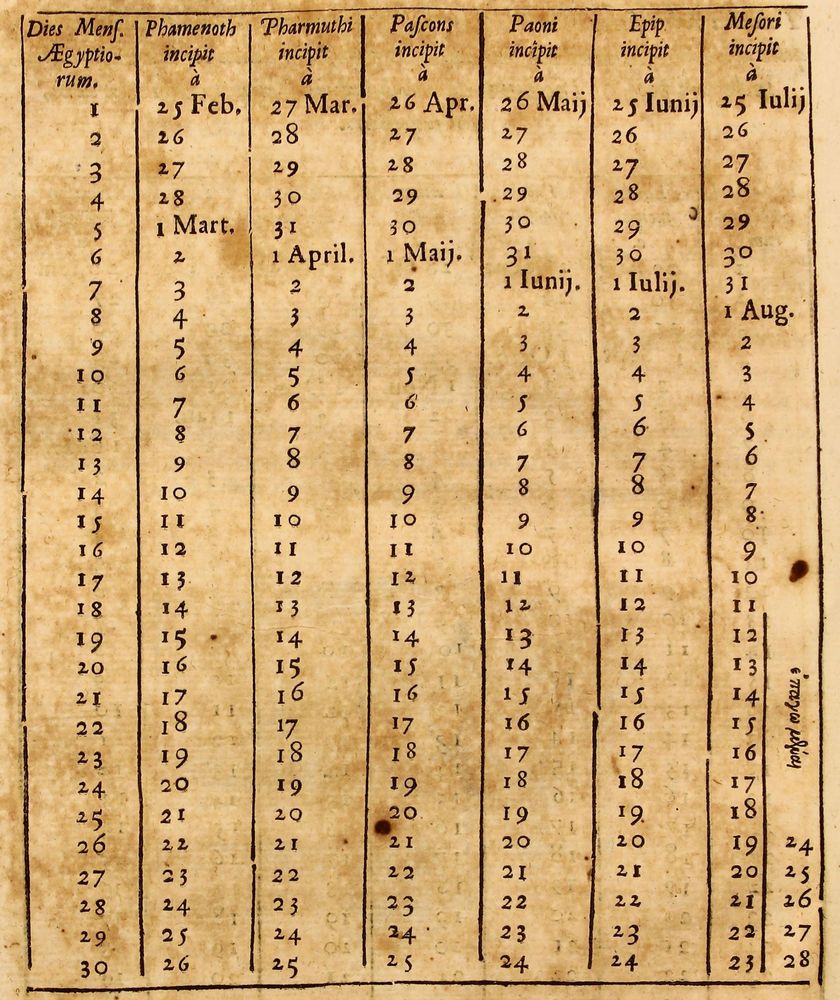 Dies Menſ. Phamenoth Pharmuthi Paſcons Paoni Epip Meſori
Ægyptio- incipit incipit incipit incipit incipit incipit
rum. à à à à à à
1 25 Feb. 27 Mar. 26 Apr. 26 Maij 25 Iunij 25 Iulij
2 26 28 27 27 26 26
3 27 29 28 28 27 27
4 28 30 29 29 28 28
5 1 Mart. 31 30 30 29 29
6 2 1 April. 1 Maij. 31 30 30
7 3 2 2 1 Iunij. 1 Iulij. 31
8 4 3 3 2 2 1 Aug.
9 5 4 4 3 3 2
10 6 5 5 4 4 3
11 7 6 6 5 5 4
12 8 7 7 6 6 5
13 9 8 8 7 7 6
14 10 9 9 8 8 7
15 11 10 10 9 9 8
16 12 11 11 10 10 9
17 13 12 12 11 11 10
18 14 13 13 12 12 11
19 15 14 14 13 13 12
20 16 15 15 14 14 13
21 17 16 16 15 15 14
22 18 17 17 16 16 15
23 19 18 18 17 17 16
24 20 19 19 18 18 17
25 21 20 20 19 19 18
26 22 21 21 20 20 19 24
27 23 22 22 21 21 20 25
28 24 23 23 22 22 21 26
29 25 24 24 23 23 22 27
30 26 25 25 24 24 23 28